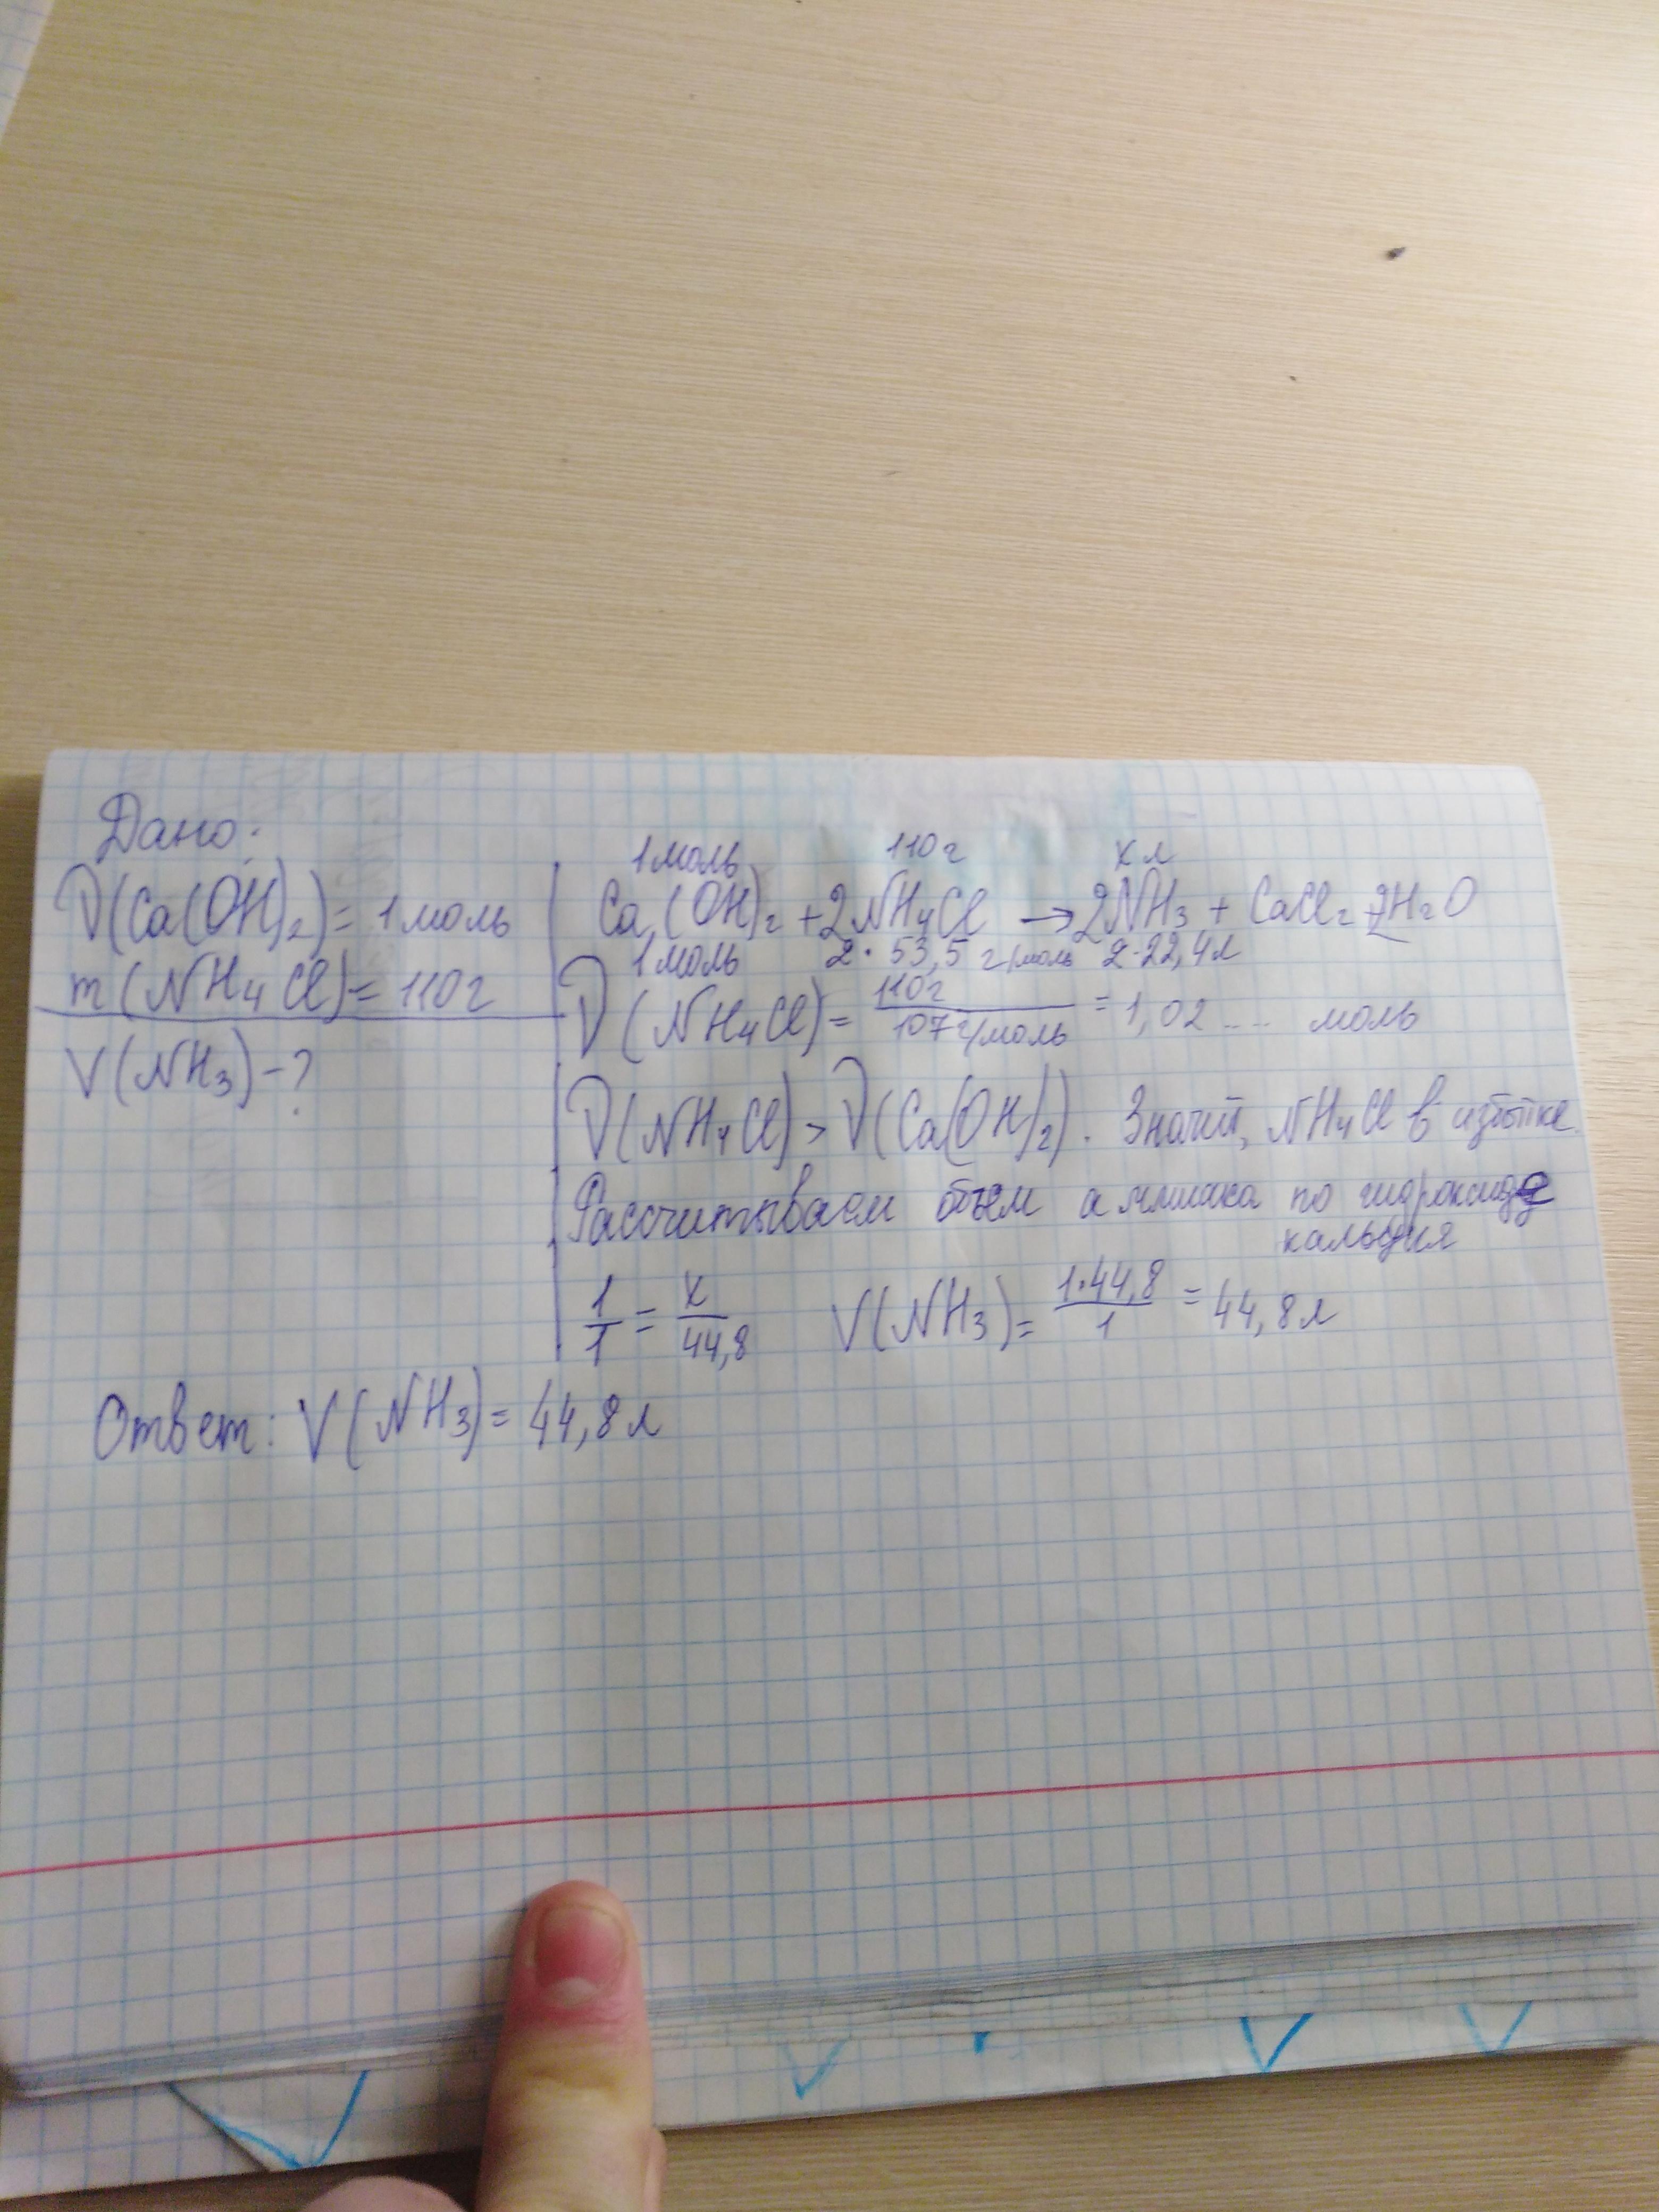 Дано:
ν(Ca(OH)₂) = 1 моль
m(NH₄Cl) = 110г
V(NH₃) - ?
1 моль 110г x л
Ca(OH)₂ + 2NH₄Cl → 2NH₃ + CaCl₂ + 2H₂O
1 моль 2·53,5 г/моль 2·22,4л
ν(NH₄Cl) = 110г / 107г/моль = 1,02... моль
ν(NH₄Cl) > ν(Ca(OH)₂). Значит, NH₄Cl в избытке.
Рассчитываем объем аммиака по гидроксиду
кальция
1/1 = x/44,8 V(NH₃) = 1·44,8/1 = 44,8л
Ответ: V(NH₃) = 44,8л